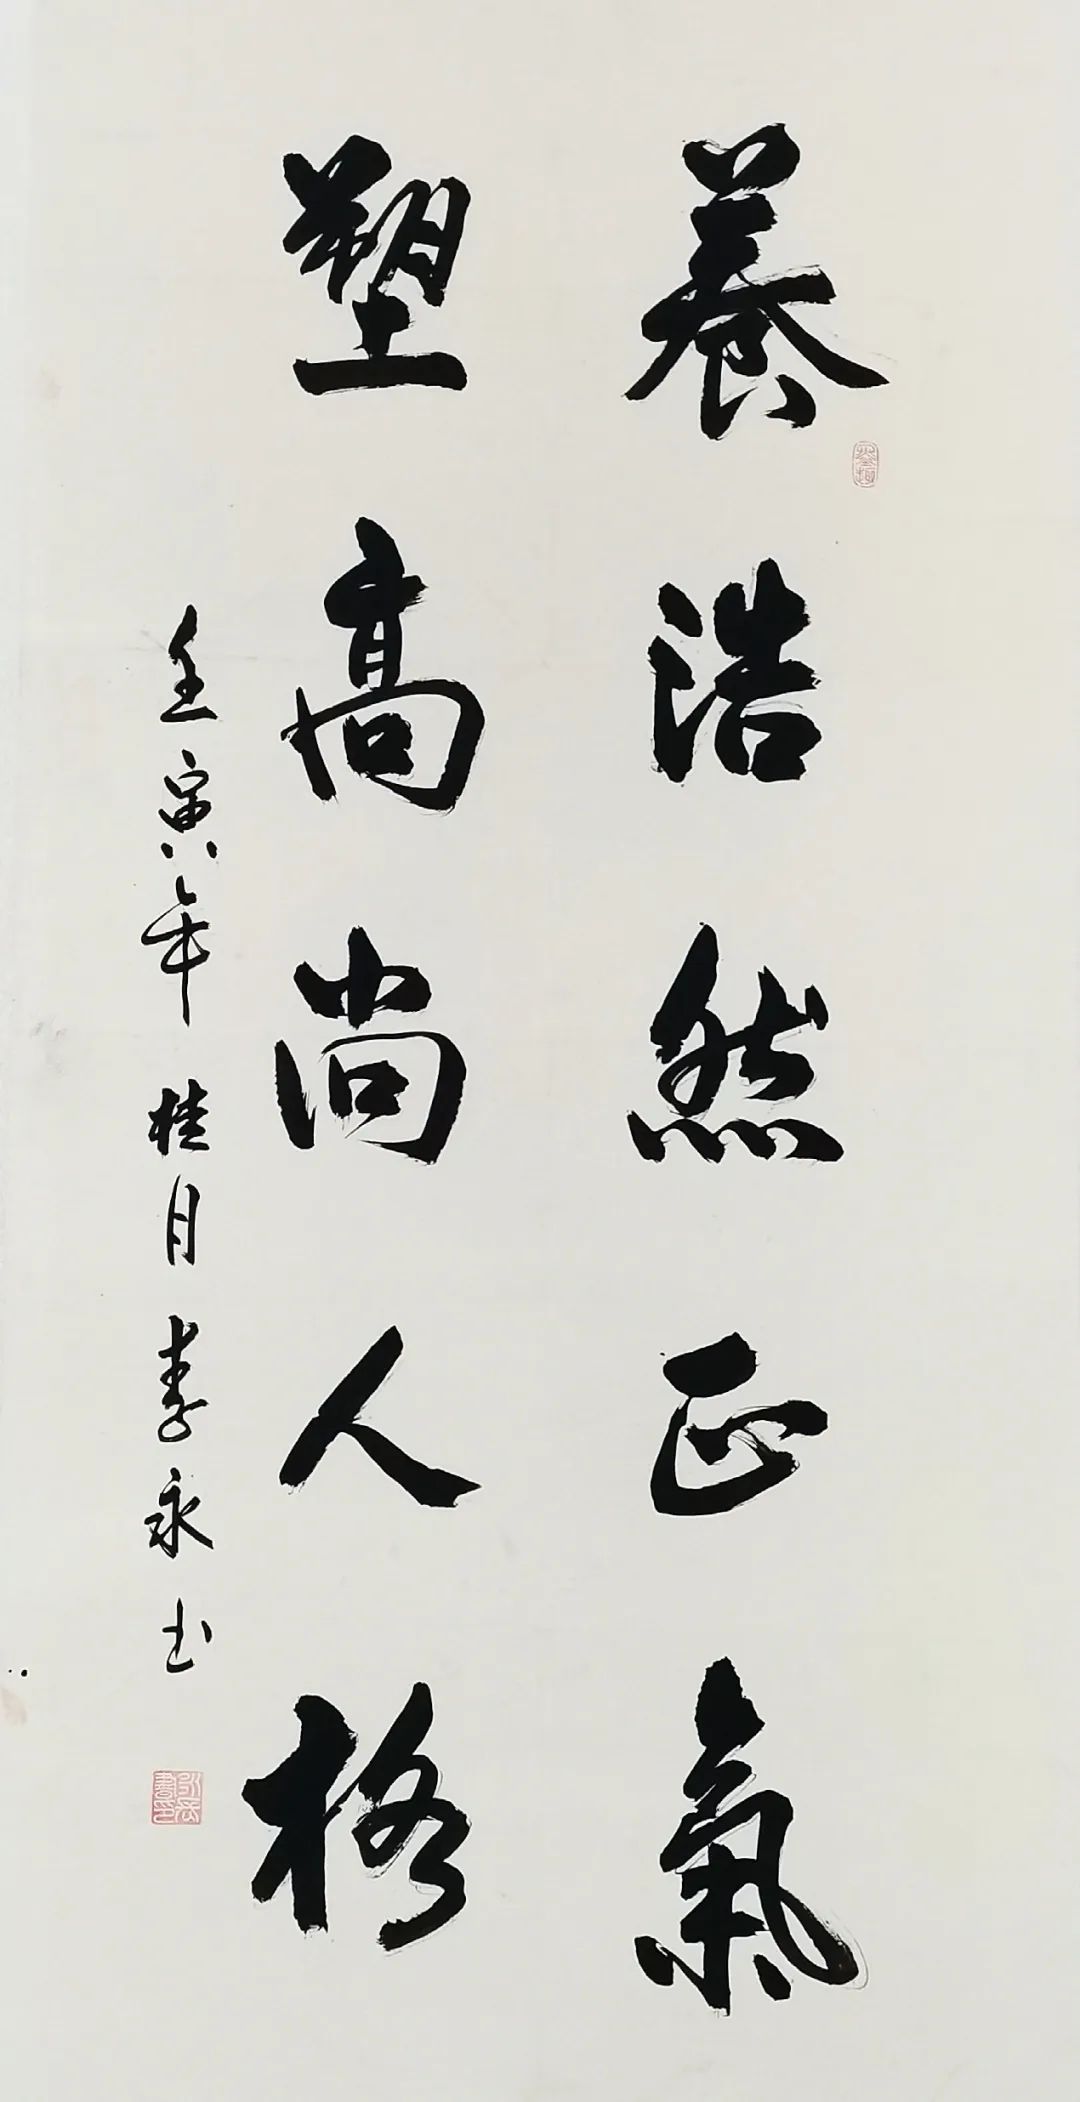 養浩然正氣
塑高尚人格
壬寅年桂月李永书